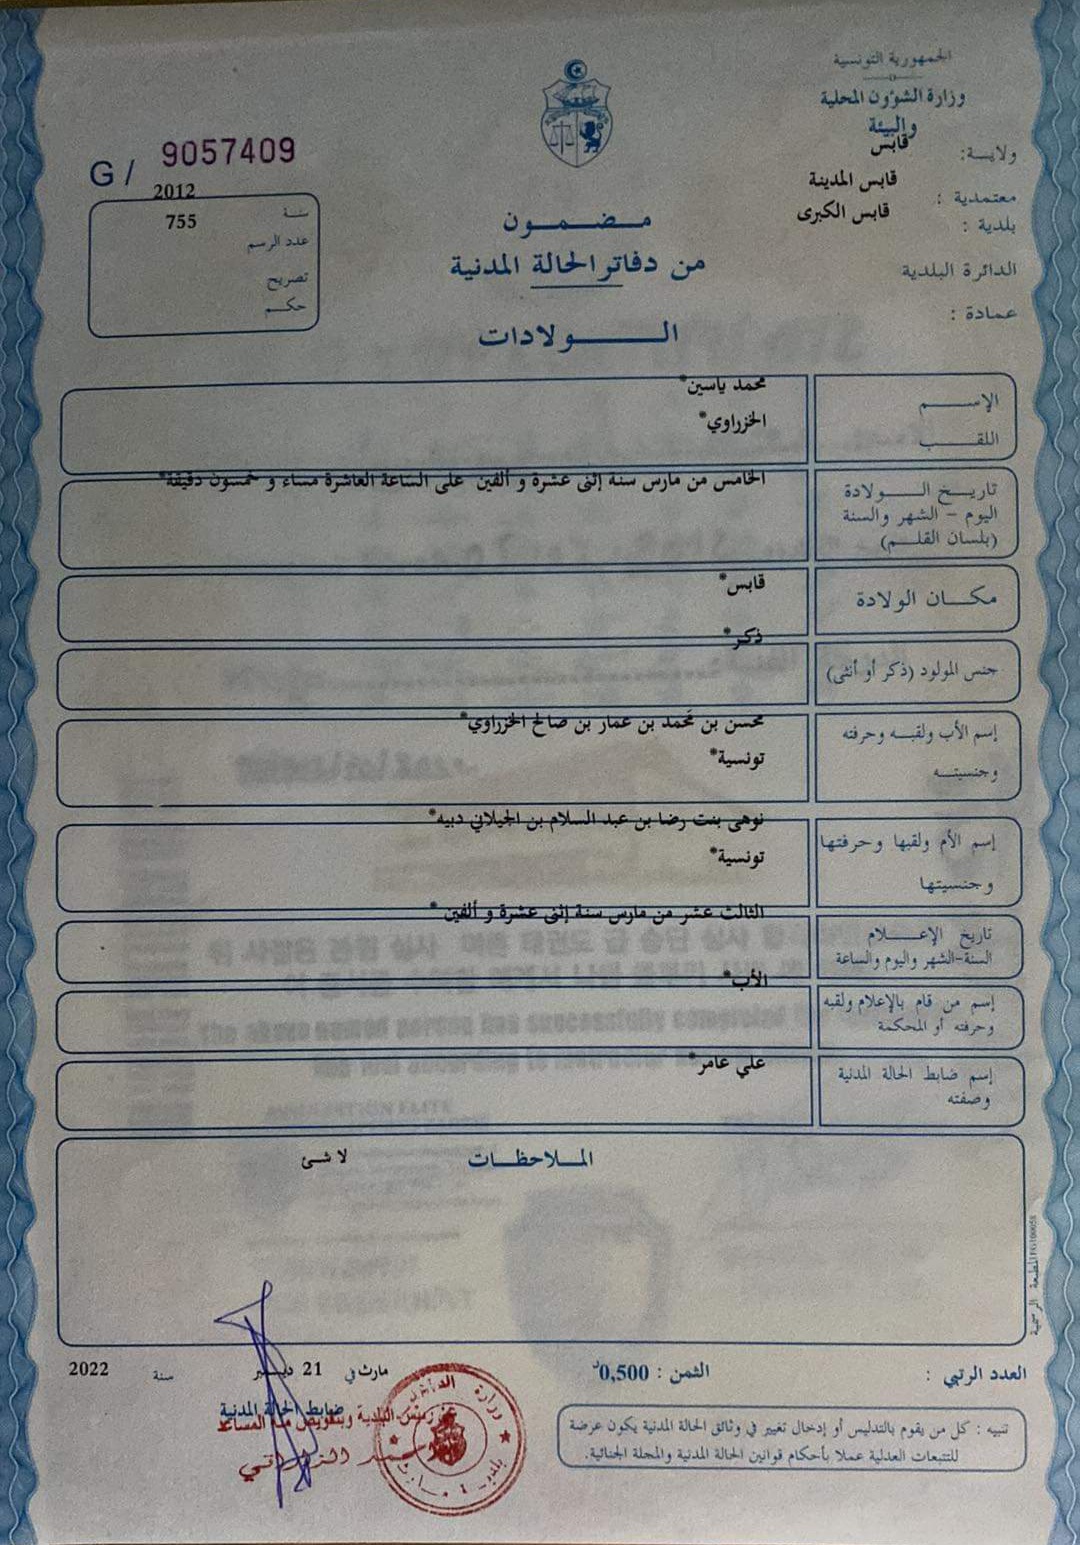 الجمهورية التونسية
وزارة الشؤون المحلية
والبيئة
ولايـة: قابس
معتمدية : قابس المدينة
بلدية : قابس الكبرى
الدائرة البلدية
عمادة :
G / 9057409
سنة 2012
عدد الرسم 755
تصريح
حكـم
مـضـمـون
من دفاتر الحالة المدنية
الـولادات
الإسـم محمد ياسين*
اللقـب الخزراوي*
تاريـخ الـولادة الخامس من مارس سنة إثنى عشرة و ألفين على الساعة العاشرة مساء و خمسون دقيقة*
اليوم - الشهر والسنة
(بلسان القلـم)
مكـان الولادة قابس*
جنس المولود (ذكر أو أنثى) ذكر*
إسم الأب ولقبـه وحرفته محسن بن محمد بن عمار بن صالح الخزراوي*
وجنسيتـه تونسية*
إسم الأم ولقبها وحرفتها نوهى بنت رضا بن عبد السلام بن الجيلاني دبيه*
وجنسيتها تونسية*
تاريخ الإعـلام الثالث عشر من مارس سنة إثنى عشرة و ألفين *
السنة-الشهر واليوم والساعة
إسم من قام بالإعلام ولقبه الأب*
وحرفته أو المحكمة
إسم ضابط الحالة المدنية علي عامر*
وصفته
الملاحظات لا شئ
المطبعة الرسمية
العدد الرتبي :
الثمن : 0,500د
مارث في 21 ديسمبر سنة 2022
ضابط الحالة المدنية
تنبيه : كل من يقوم بالتدليس أو إدخال تغيير في وثائق الحالة المدنية يكون عرضة
للتتبعات العدلية عملا بأحكام قوانين الحالة المدنية والمجلة الجنائية.